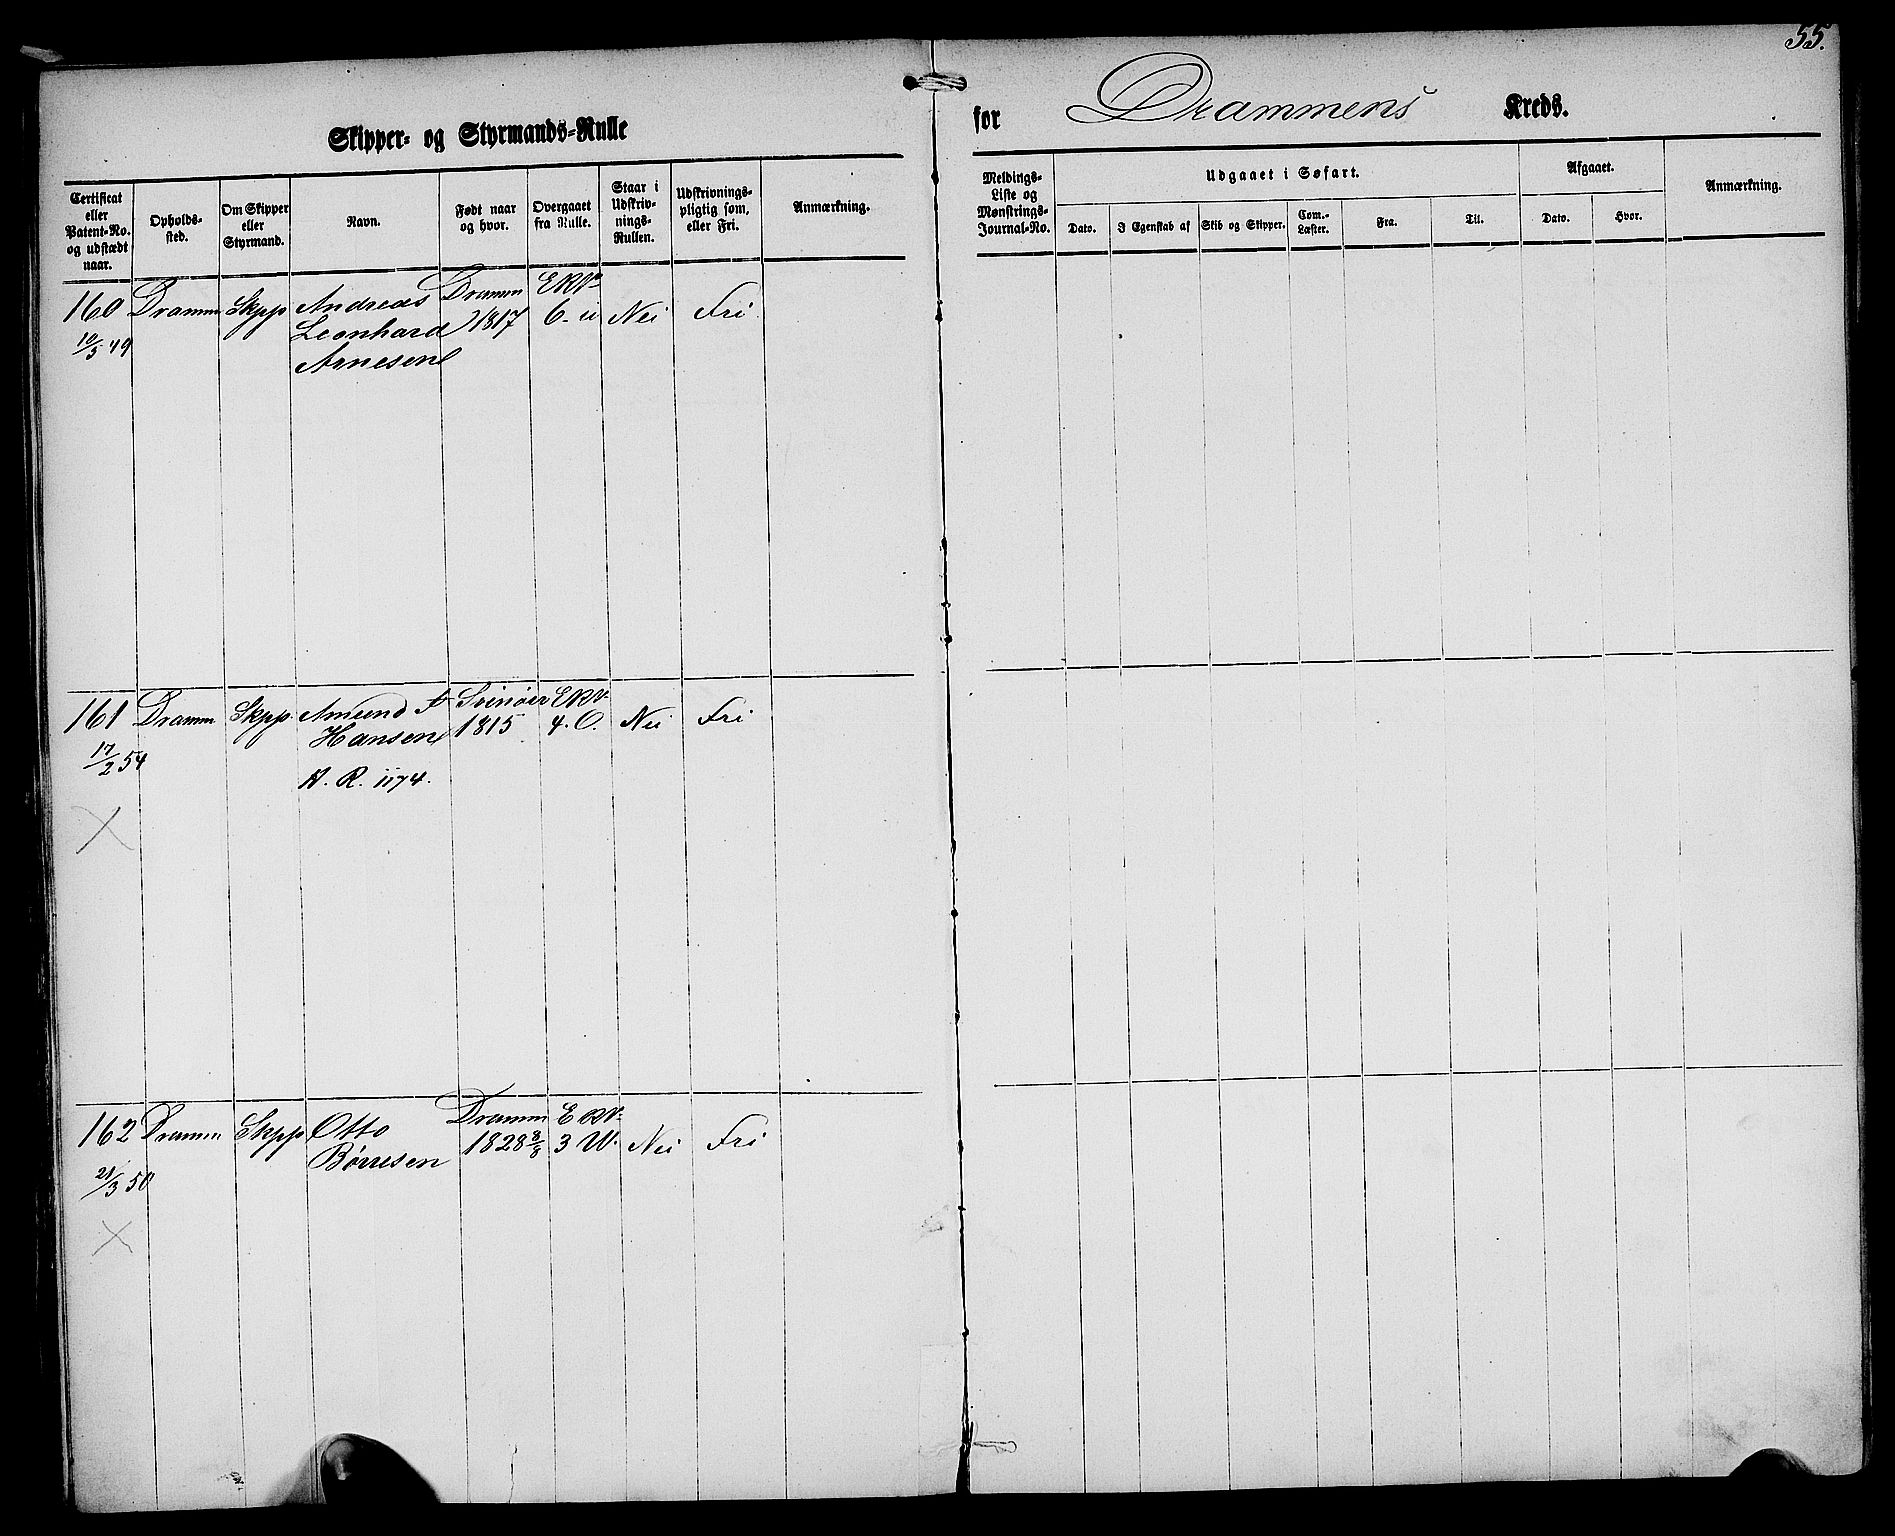 55.
Skipper- og Styrmands-Rulle
for Drammens Kreds.
Certificat
eller
Patent-No.
og udstædt
naar.
Opholds-
sted.
Om Skipper
eller
Styrmand.
Navn.
Født naar
og hvor.
Overgaaet
fra Rulle.
Staar i
Udskriv-
nings-
Rullen.
Udskrivnings-
pligtig som,
eller Fri.
Anmærkning.
Meldings-
Liste og
Mønstrings-
Journal-No.
Udgaaet i Søfart.
Dato.
I Egenskab af
Skib og Skipper.
Com.-
Læster.
Fra.
Til.
Afgaaet.
Dato.
Hvor.
Anmærkning.
160
10/5 49
Dramm
Skpp
Andreas
Leonhard
Arnesen
Dramm
1817
6-u
Nei
Fri
161
17/2 54
Dramm
Skpp.
Amund
Hansen
A. R. 1174.
Svinøer
1815
4. O.
Nei
Fri
162
21/3 50
Dramm
Skpp
Otto
Børresen
Dramm
1828 8/8
3 W.
Nei
Fri